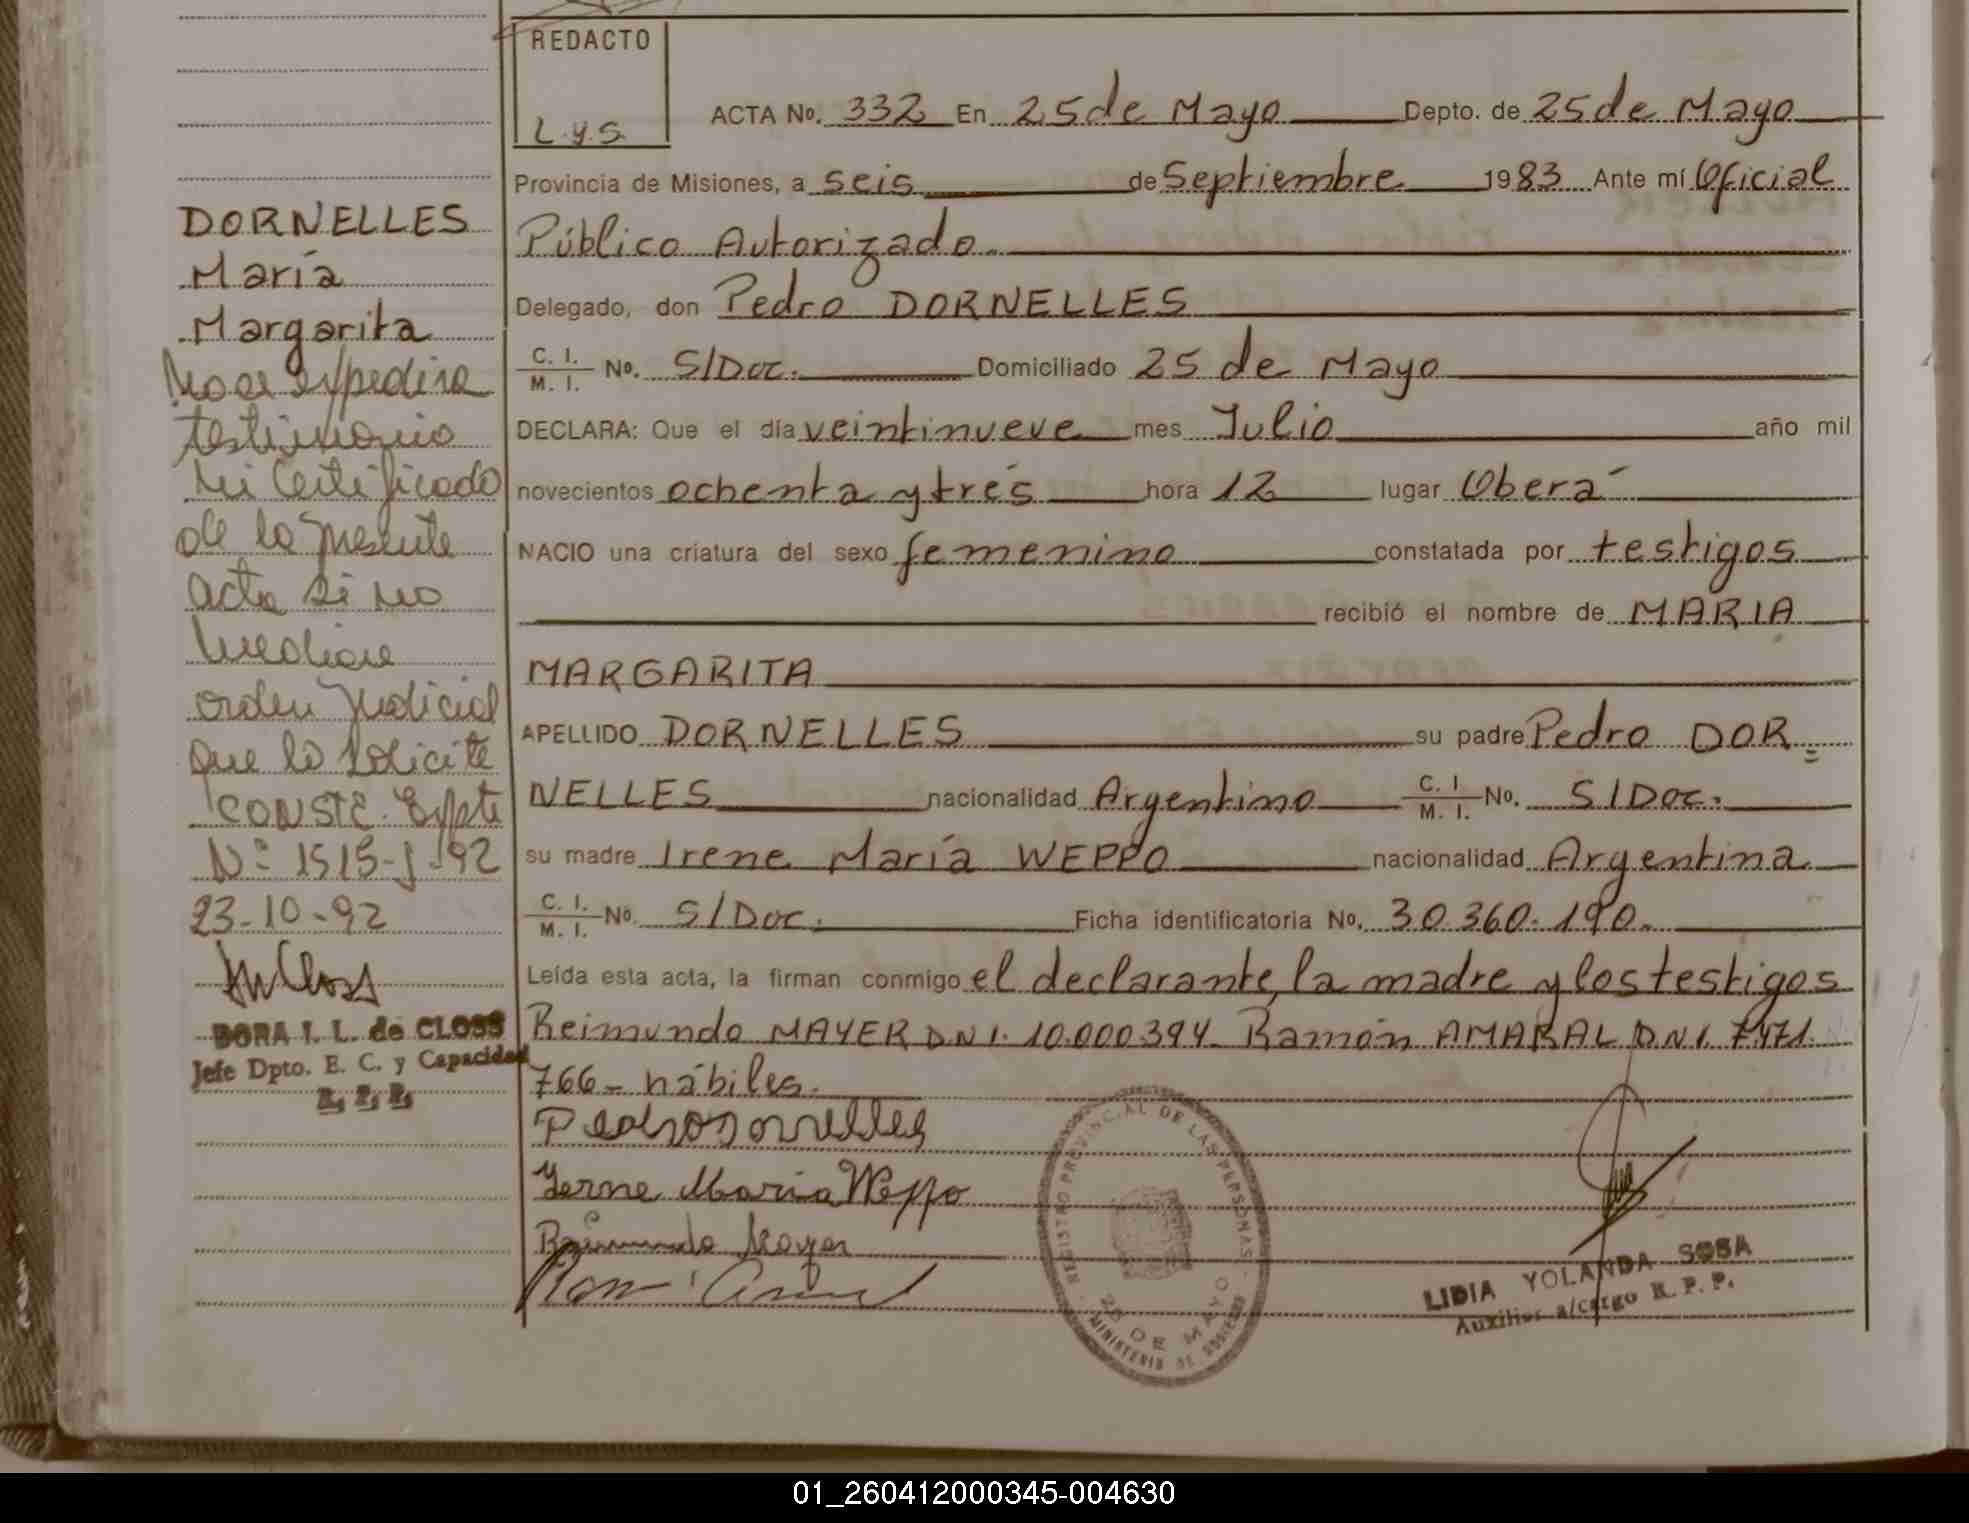 REDACTO
L.y.S.
ACTA No. 332 En 25 de Mayo Depto. de 25 de Mayo
Provincia de Misiones, a seis de Septiembre 1983 Ante mí Oficial
Público Autorizado.
Delegado, don Pedro DORNELLES
C. I. / M. I. No. S/Doc. Domiciliado 25 de Mayo
DECLARA: Que el día veintinueve mes Julio año mil
novecientos ochenta y tres hora 12 lugar Oberá
NACIO una criatura del sexo femenino constatada por testigos
recibió el nombre de MARIA
MARGARITA
APELLIDO DORNELLES su padre Pedro DOR=
NELLES nacionalidad Argentino C. I / M. I. No. S/Doc.
su madre Irene María WEPPO nacionalidad Argentina
C. I. / M. I. No. S/Doc. Ficha identificatoria No. 30.360.190.
Leída esta acta, la firman conmigo el declarante, la madre y los testigos
Reimundo MAYER D.N.I. 10.000.394. Ramón AMARAL D.N.I. 7.471.
766- hábiles.
Pedro Dornelles
Yerne Maria Weppo
Raimundo Mayer
DORNELLES
María
Margarita
No se expedira
testimonio
ni Certificado
de la presente
acta si no
mediare
orden Judicial
que lo solicite
CONSTE. Expte
Nº 1515-J-92
23-10-92
DORA I. L. de CLOSS
Jefe Dpto. E. C. y Capacidad
R. P. P.
REGISTRO PROVINCIAL DE LAS PERSONAS
25 DE MAYO
MINISTERIO DE GOBIERNO
LIDIA YOLANDA SOSA
Auxiliar a/cargo R. P. P.
01_260412000345-004630